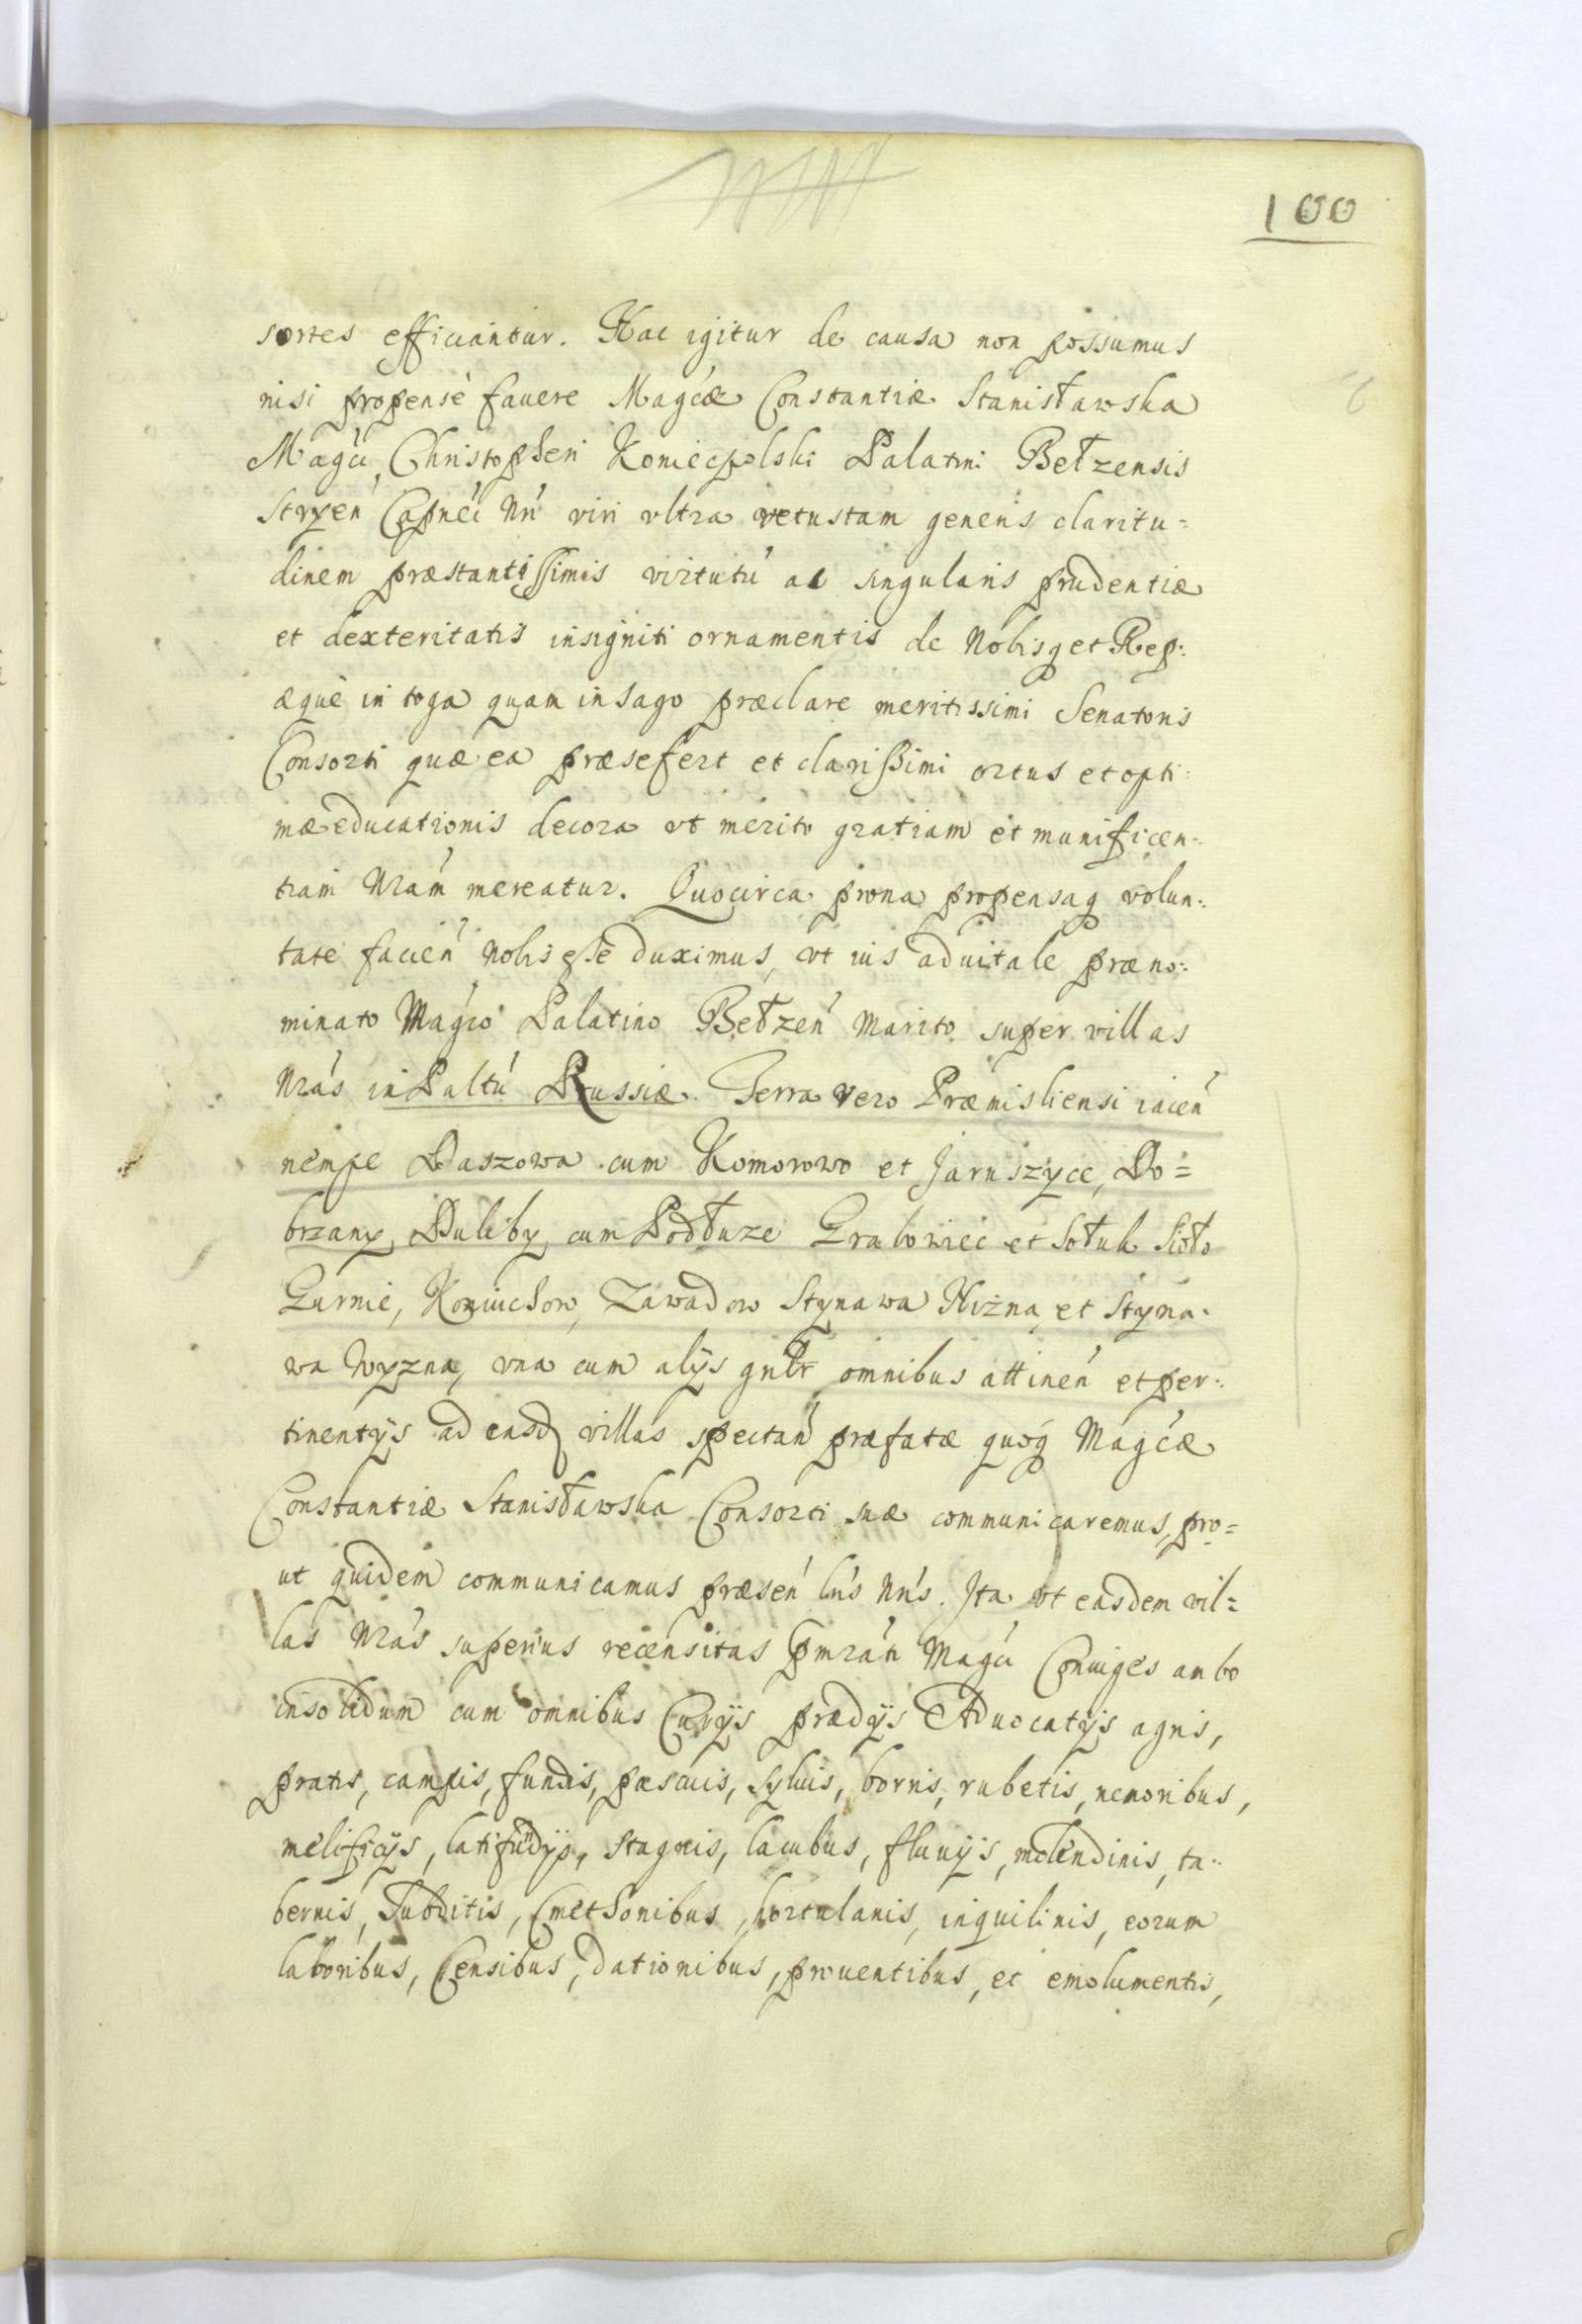 100
sortes efficiantur. Hac igitur de causa non possumus
nisi propensè fauere Magcæ Constantiæ Stanisławska
Magci Christopheri Koniecpolski Palatini Bełzensis
Stryen Capnei Nri viri vltra vetustam generis claritu=
dinem præstantissimis virtutú ac singularis prudentiæ
et dexteritatis insigniti ornamentis de Nobisq et Rep:
æquè in toga quam in sago præclare meritissimi Senatoris
Consorti quæ ea præsefert et clarissimi ortus et opti:
mæ educationis decora vt merito gratiam et munificen:
tiam Nram mereatur. Quocirca prona propensaq volun:
tate facień Nobis esse duximus, vt ius aduitale præno:
minato Magco Palatino Bełzeń Marito super villas
Nras in Paltú Russiæ. Terra vero Præmisliensi iaceń
nempe Daszowa cum Komorowo et Jaruszyce, Do=
brzany, Duliby, cum Podłuze Grabowiec et Sołuk Sioło
Gurnie, Koniuchow, Zawadow Stynawa Niżna, et Styna:
wa Wyzna, vna cum alijs gnlr omnibus attineń et per:
tinentijs ad easd villas spectań præfatæ quoq Magcæ
Constantiæ Stanisławska Consorti suæ communicaremus, pro=
ut quidem communicamus præseń lris Nris. Ita vt easdem vil=
las Nras superius recensitas pmrati Magci Coniuges ambo
insolidum cum omnibus Curijs prædijs Aduocatijs agris,
pratis, campis, fundis, pascuis, syluis, borris, rubetis, nemoribus,
melificijs, latifundijs, stagnis, lacubus, fluuijs, molendinis, ta:
bernis, Subditis, Cmethonibus, hortulanis, inquilinis, eorum
laboribus, Censibus, dationibus, prouentibus, et emolumentis,